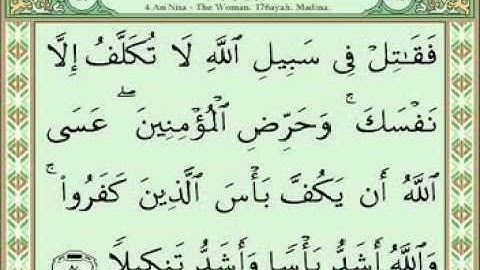 4. Ani Nisa - The Woman. 176ayah. Madina.
فَقَـٰتِلْ فِى سَبِيلِ ٱللَّهِ لَا تُكَلَّفُ إِلَّا
نَفْسَكَ ۚ وَحَرِّضِ ٱلْمُؤْمِنِينَ ۖ عَسَى
ٱللَّهُ أَن يَكُفَّ بَأْسَ ٱلَّذِينَ كَفَرُوا۟ ۚ
وَٱللَّهُ أَشَدُّ بَأْسًا وَأَشَدُّ تَنكِيلًا